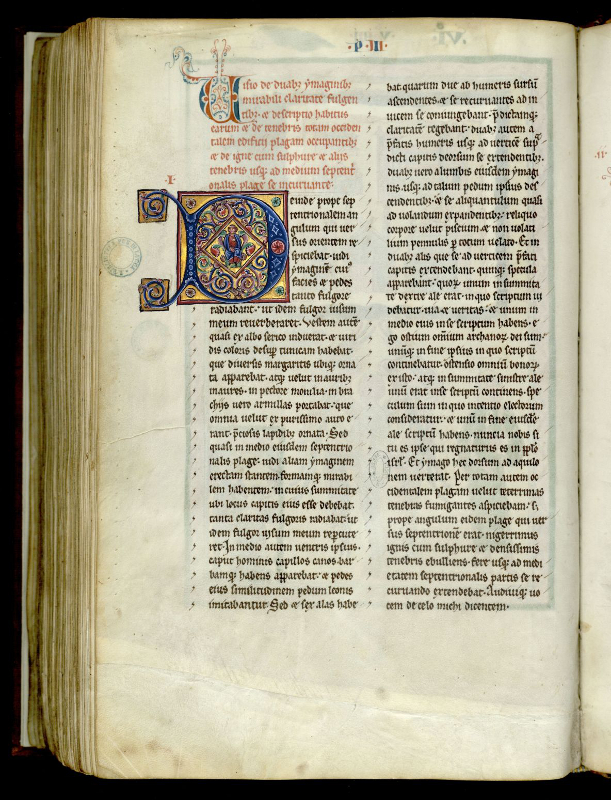 · P · III ·
Visio de duabȝ ymaginibȝ
mirabili claritate fulgen
tibȝ. et descriptio habitus
earum et de tenebris totam occiden
talem edificii plagam occupantibȝ
et de igne cum sulphure et aliis
tenebris usqȝ ad medium septentͥ
onalis plage se incuruante.
I.
Deinde prope sep
tentrionalem an
gulum qui ver
sus orientem re
spiciebat. uidi
ymaginē cuiꝰ
facies et pedes
tanto fulgore
radiabant. ut idem fulgor uisū
meum reuerberaret. Vestem autē
quasi ex albo serico induerat. et uiri
dis coloris desuꝑ tunicam habebat.
que diuersis margaritis ubiqȝ orna
ta apparebat. atqȝ uelut inauribȝ
inaures. in pectore monilia. in bra
chijs uero armillas portabat. que
omnia uelut ex purissimo auro e
rant. p̄ciosis lapidibȝ ornata. Sed
quasi in medio eiusdem septentrio
nalis plage. uidi aliam ymaginem
erectam stantem. formamqȝ mirabi
lem habentem. in cuius summitate
ubi locus capitis eius esse debebat.
tanta claritas fulgoris radiabat. ut
idem fulgor uisum meum reꝑcute
ret. In medio autem uentris ipsius.
caput hominis capillos canos. bar
bamqȝ habens apparebat. et pedes
eius similitudinem pedum leonis
imitabantur. Sed et sex alas habe
bat. quarum due ab humeris sursū
ascendentes. et se recuruantes ad in
uicem se coniungebant. p̄dictamqȝ
claritatē tegebant. duabȝ autem a
p̄fatis humeris usqȝ ad uerticē sup̄
dicti capitis deorsum se extendentibȝ.
duabȝ uero a lumbis eiusdem ymagi
nis. usqȝ ad talum pedum ipsius des
cendentibȝ. et se aliquantulum quasi
ad uolandum expandentibȝ. reliquo
corpore uelut piscium et non uolati
lium pennulis ꝑ totum uelato. Et in
duabȝ alis que se ad uerticem p̄fati
capitis extendebant. quinqȝ specula
apparebant. quoꝝ unum in summita
te dextre ale erat. in quo scriptum ui
debatur. uia et ueritas. et unum in
medio eius in se scriptum habens. e
go ostium omnium archanoꝝ dei sum.
unūqȝ in fine ipsius in quo scriptū
continebatur. ostensio omniū bonoꝝ
existo. atqȝ in summitate sinistre ale
unū erat in se scriptū continens. spe
culum sum in quo intentio electorum
consideratur. et unū in fine eiusdē
ale scriptū habens. nuncia nobis si
tu es ipse qui regnaturus es in pp̄lo
isrl̄. Et ymago hec dorsum ad aquilo
nem uertebat. Per totam autem oc
cidentalem plagam uelut teterrimas
tenebras fumigantes aspiciebam. s;
prope angulum eidem plage qui uer
sus septentrionē erat. nigerrimus
ignis cum sulphure et densissimis
tenebris ebulliens. fere usqȝ ad medi
etatem septentrionalis partis se re
curuando extendebat. Audiuiqȝ uo
cem de celo michi dicentem.